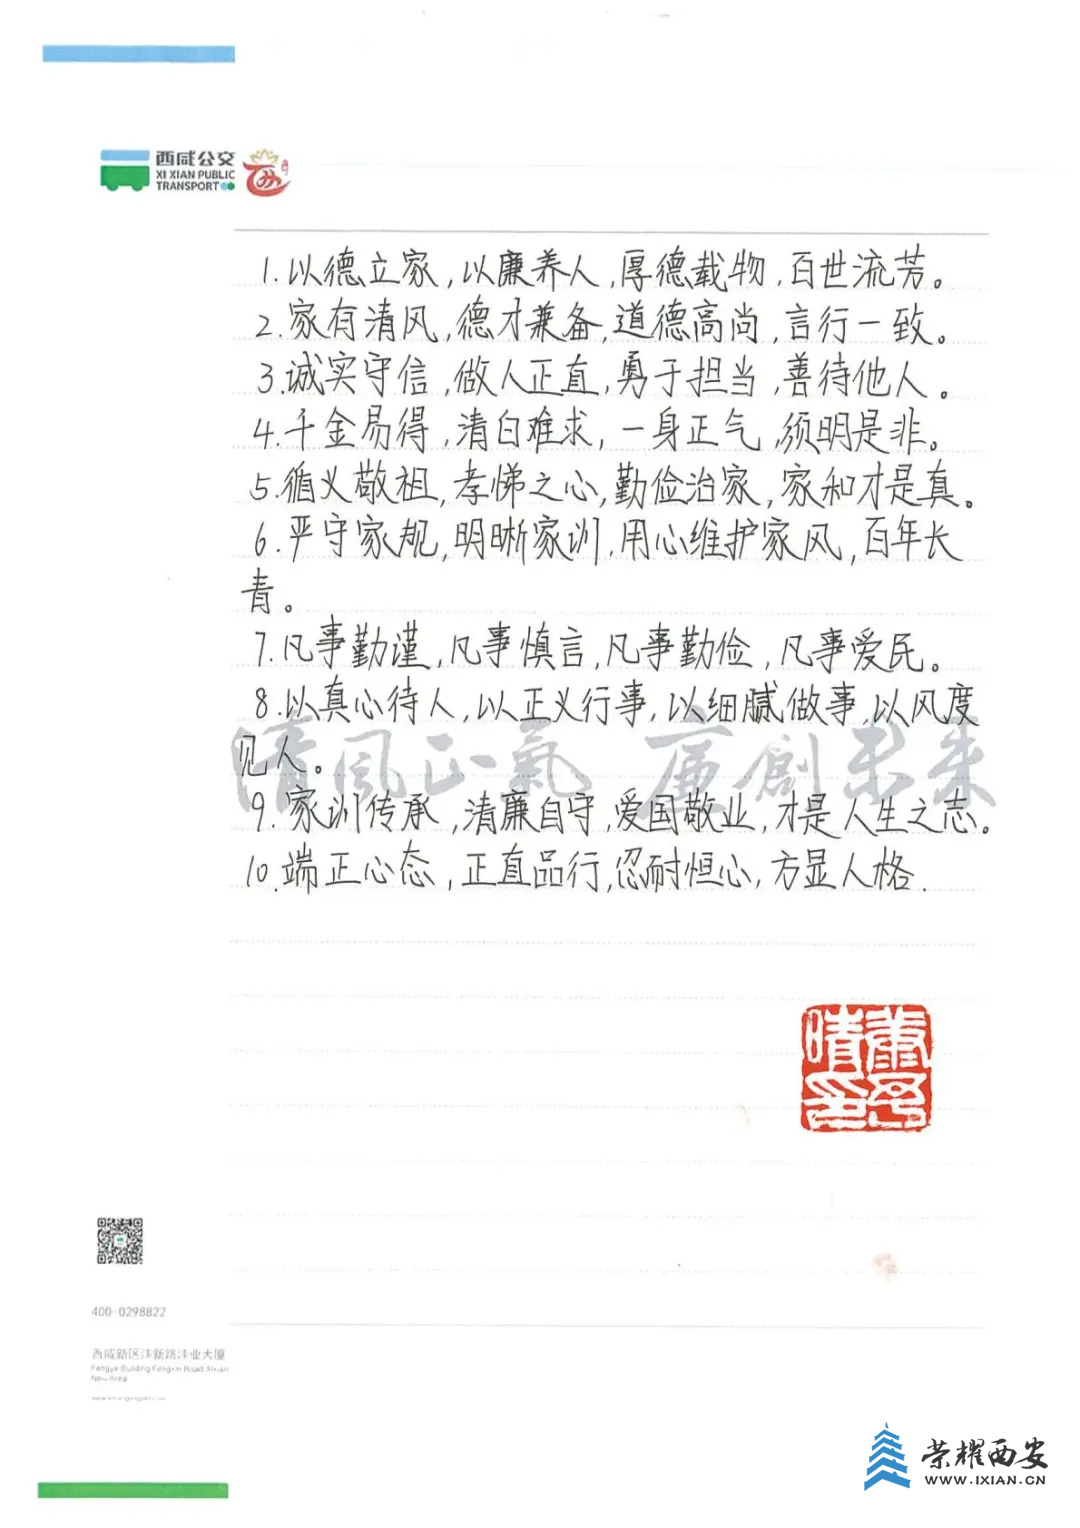 西咸公交
XI XIAN PUBLIC
TRANSPORT
1.以德立家,以廉养人,厚德载物,百世流芳。
2.家有清风,德才兼备,道德高尚,言行一致。
3.诚实守信,做人正直,勇于担当,善待他人。
4.千金易得,清白难求,一身正气,须明是非。
5.循义敬祖,孝悌之心,勤俭治家,家和才是真。
6.严守家规,明晰家训,用心维护家风,百年长
青。
7.凡事勤谨,凡事慎言,凡事勤俭,凡事爱民。
8.以真心待人,以正义行事,以细腻做事,以风度
见人。
清风正氣 廉創未来
9.家训传承,清廉自守,爱国敬业,才是人生之志。
10.端正心态,正直品行,忍耐恒心,方显人格.
400-0298822
西咸新区沣新路沣业大厦
Fengye Building Fengxin Road Xixian
New Area
荣耀西安
WWW.IXIAN.CN